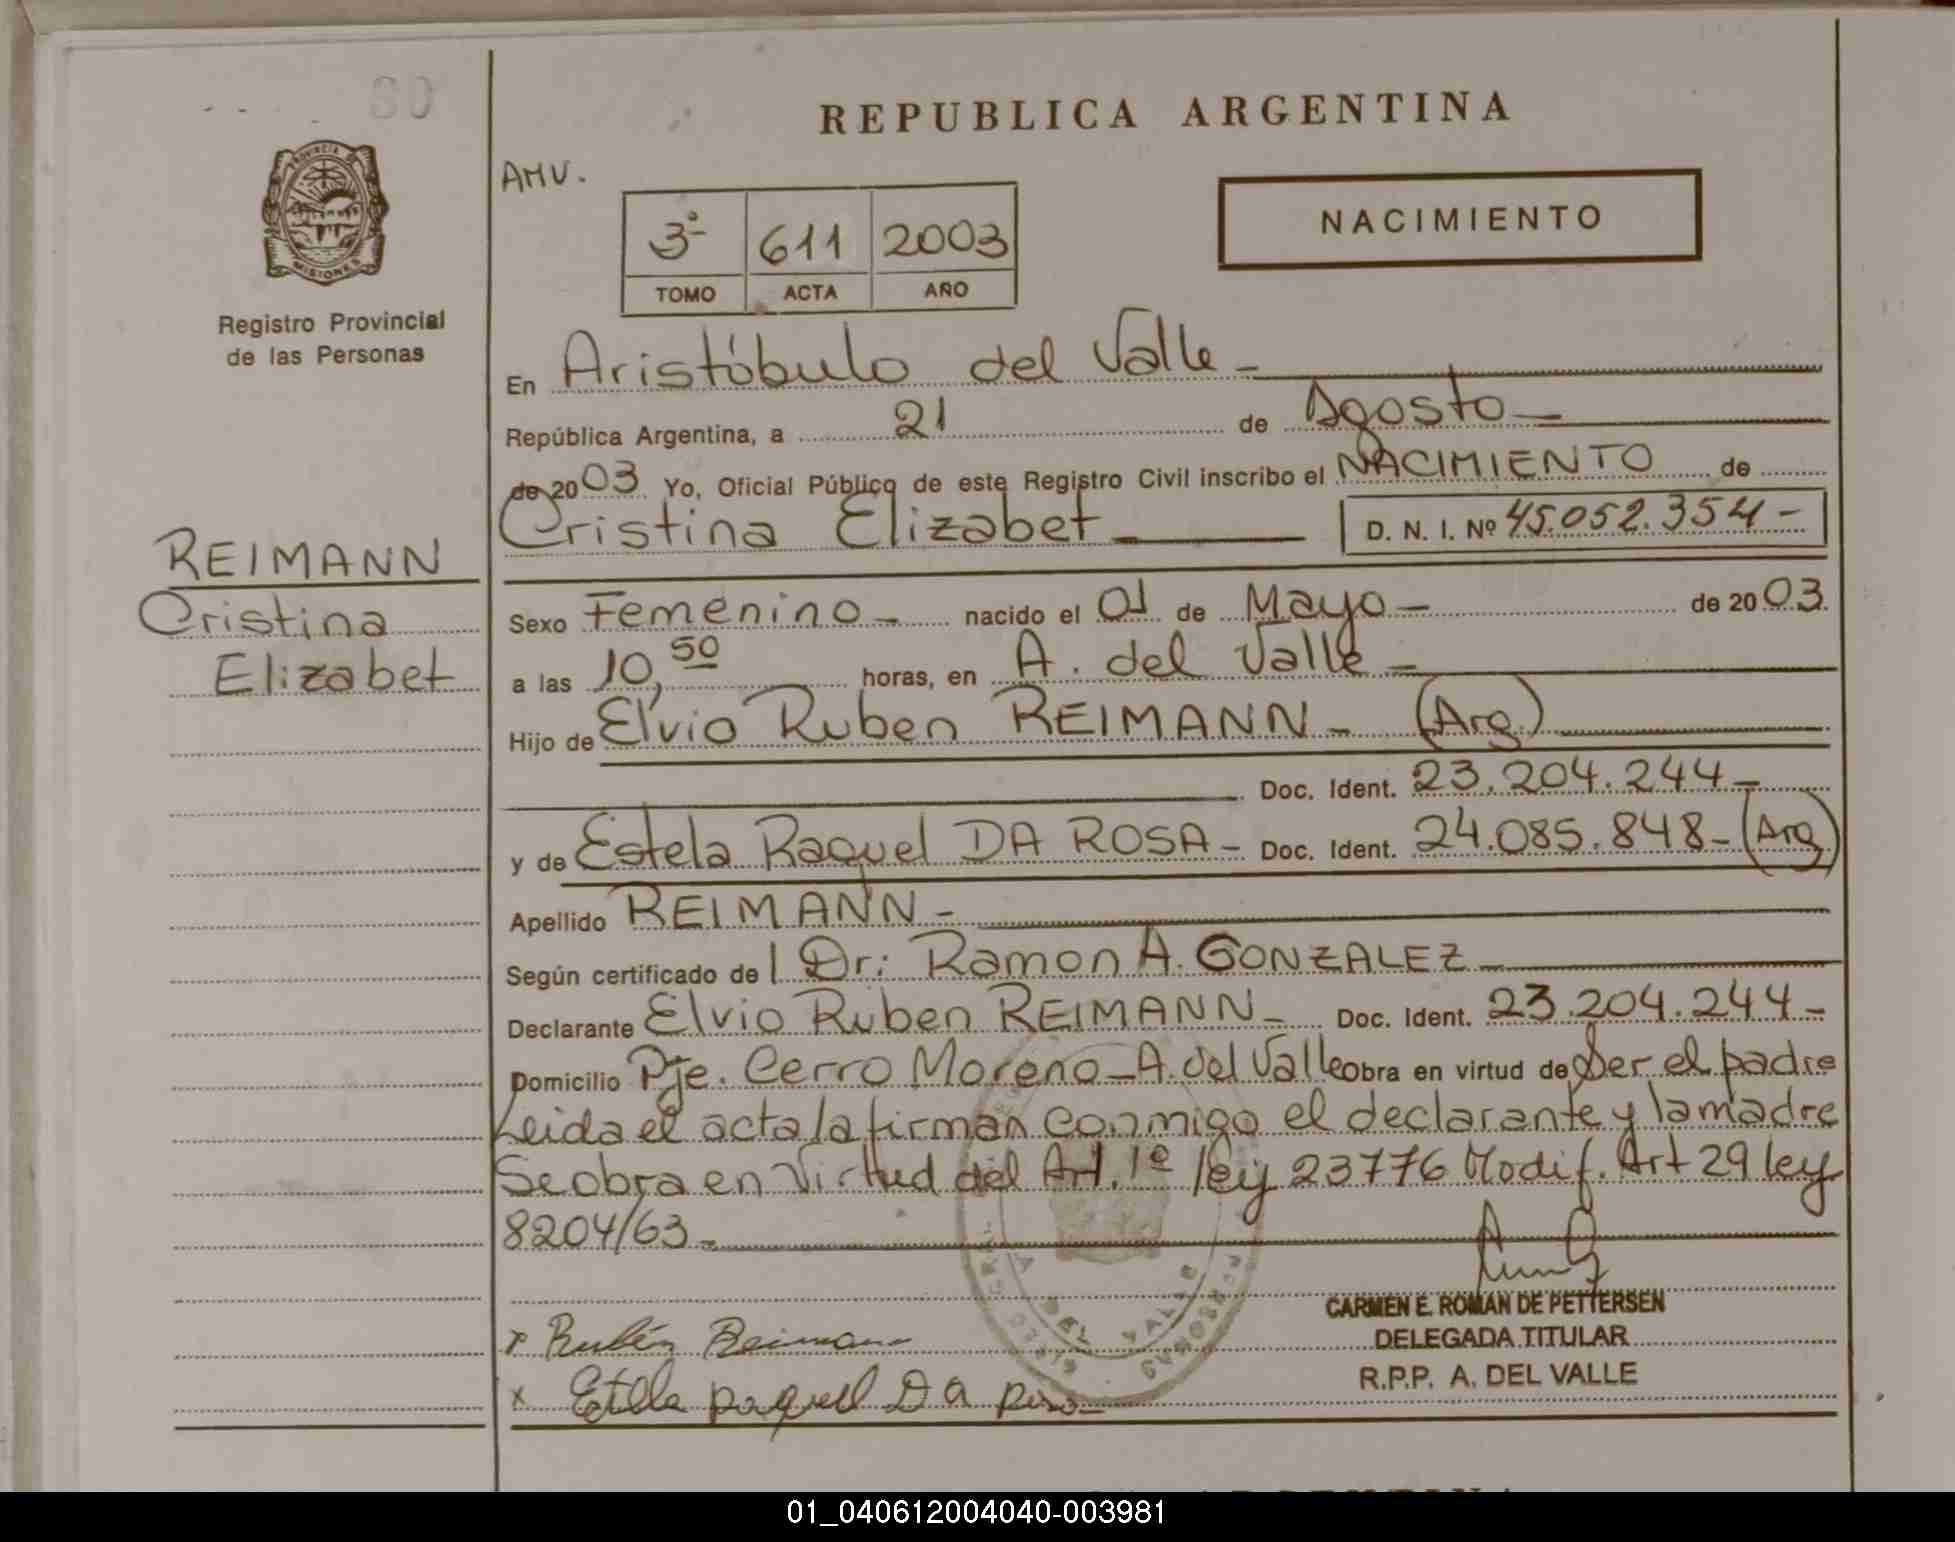 80
REPUBLICA ARGENTINA
AMV.
3º 611 2003
TOMO ACTA AÑO
NACIMIENTO
PROVINCIA DE
MISIONES
Registro Provincial
de las Personas
En Aristóbulo del Valle -
República Argentina, a 21 de Agosto -
de 2003 Yo, Oficial Público de este Registro Civil inscribo el NACIMIENTO de
Cristina Elizabet D. N. I. Nº 45.052.354 -
REIMANN
Cristina
Elizabet
Sexo Femenino - nacido el 01 de Mayo - de 2003.
a las 10,50 horas, en A. del Valle -
Hijo de Elvio Ruben REIMANN - (Arg.)
Doc. Ident. 23.204.244 -
y de Estela Raquel DA ROSA - Doc. Ident. 24.085.848 - (Arg)
Apellido REIMANN -
Según certificado de l Dr: Ramon A. GONZALEZ
Declarante Elvio Ruben REIMANN - Doc. Ident. 23.204.244 -
Domicilio Pje. Cerro Moreno - A. del Valle obra en virtud de Ser el padre
Leida el acta la firman conmigo el declarante y la madre
Se obra en Virtud del Art. 1º ley 23776 Modif. Art 29 ley
8204/63 -
CARMEN E. ROMAN DE PETTERSEN
x Rubén Reimann
DELEGADA TITULAR
R.P.P. A. DEL VALLE
x Estela Raquel Da Rosa -
A DEL VALLE
01_040612004040-003981